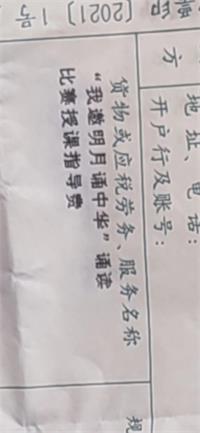 〔2021〕1号
方
地址、电话：
开户行及账号：
货物或应税劳务、服务名称
规
“我邀明月诵中华”诵读
比赛授课指导费